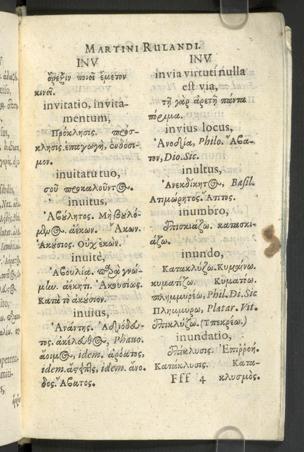 MARTINI RULANDI.
INV
ὄρεξιν ποιεῖ ἔμετον
κινεῖ.
invitatio, invita-
mentum,
Πρόκλησις. πρόσ-
κλησις. ἐπαγωγή,
μον.
inuitatu tuo,
σοῦ προκαλοῦντος.
inuitus,
Ἀβούλητος. Μὴ βουλό-
μενος. ἀέκων. Ἄκων.
Ἀκούσιος. Οὐχ ἑκών.
inuitè,
Ἀβουλία. παρὰ γνώ-
μην. ἀέκητι. Ἀκουσίως.
Κατὰ τὸ ἀκούσιον.
inuius,
Ἀνάντης. Δυσέξοδευ-
τος. ἀκέλευθος, Phauo.
ἄοιμος, idem. ἀπρόσιτος,
idem. idem. ἄνο-
δος. Ἄβατος.
INV
invia virtuti nulla
est via,
τῇ γὰρ ἀρετῇ πάντα
invius locus,
Ἀνοδία, Philo. Ἄβα-
τον, Dio. Sic.
inultus,
Ἀνεκδίκητος, Basil.
Ἀτιμώρητος. Ἄτιτος.
inumbro,
ἐπισκιάζω. κατασκι-
άζω.
inundo,
Κατακλύζω. Κυμαίνω.
κυματίζω. Κυματόω.
πλημμυρέω, Phil. Di. Sic
Πλημμύρω, Plutar. Vit.
ἐπικλύζω. (Ὑπερρέω.)
inundatio,
ἐπίκλυσις. Ἐπιρροή.
Κατάκλυσις. Κατα-
Fff 4 κλυσμός.